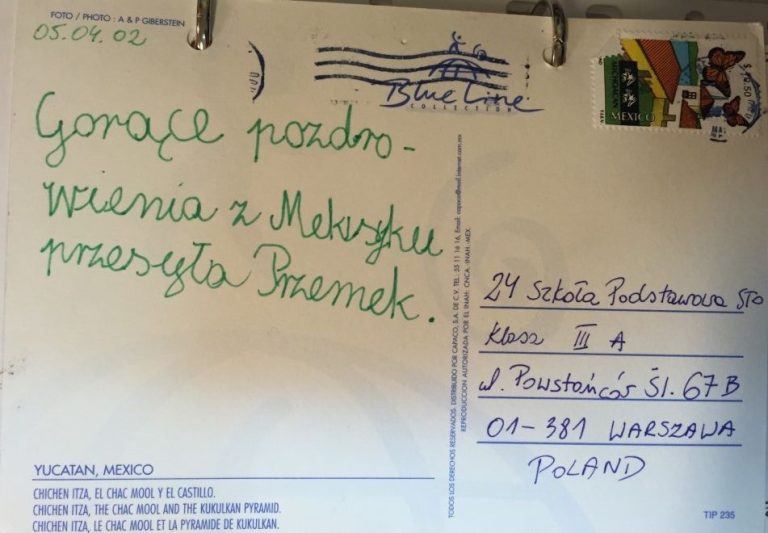 FOTO / PHOTO : A & P GIBERSTEIN
05.04.02
Gorące pozdro-
wienia z Meksyku
przesyła Przemek.
Blue Line
COLLECTION
MEXICO
24 Szkoła Podstawowa STO
Klasa III A
ul. Powstańców Śl. 67B
01-381 WARSZAWA
POLAND
TODOS LOS DERECHOS RESERVADOS. DISTRIBUIDO POR CAPACO, S.A. DE C.V. TEL.: 55 11 16 16, Email:
REPRODUCCION AUTORIZADA POR EL INAH: CNCA.-INAH.-MEX.
YUCATAN, MEXICO
CHICHEN ITZA, EL CHAC MOOL Y EL CASTILLO.
CHICHEN ITZA, THE CHAC MOOL AND THE KUKULKAN PYRAMID.
CHICHEN ITZA, LE CHAC MOOL ET LA PYRAMIDE DE KUKULKAN.
TIP 235